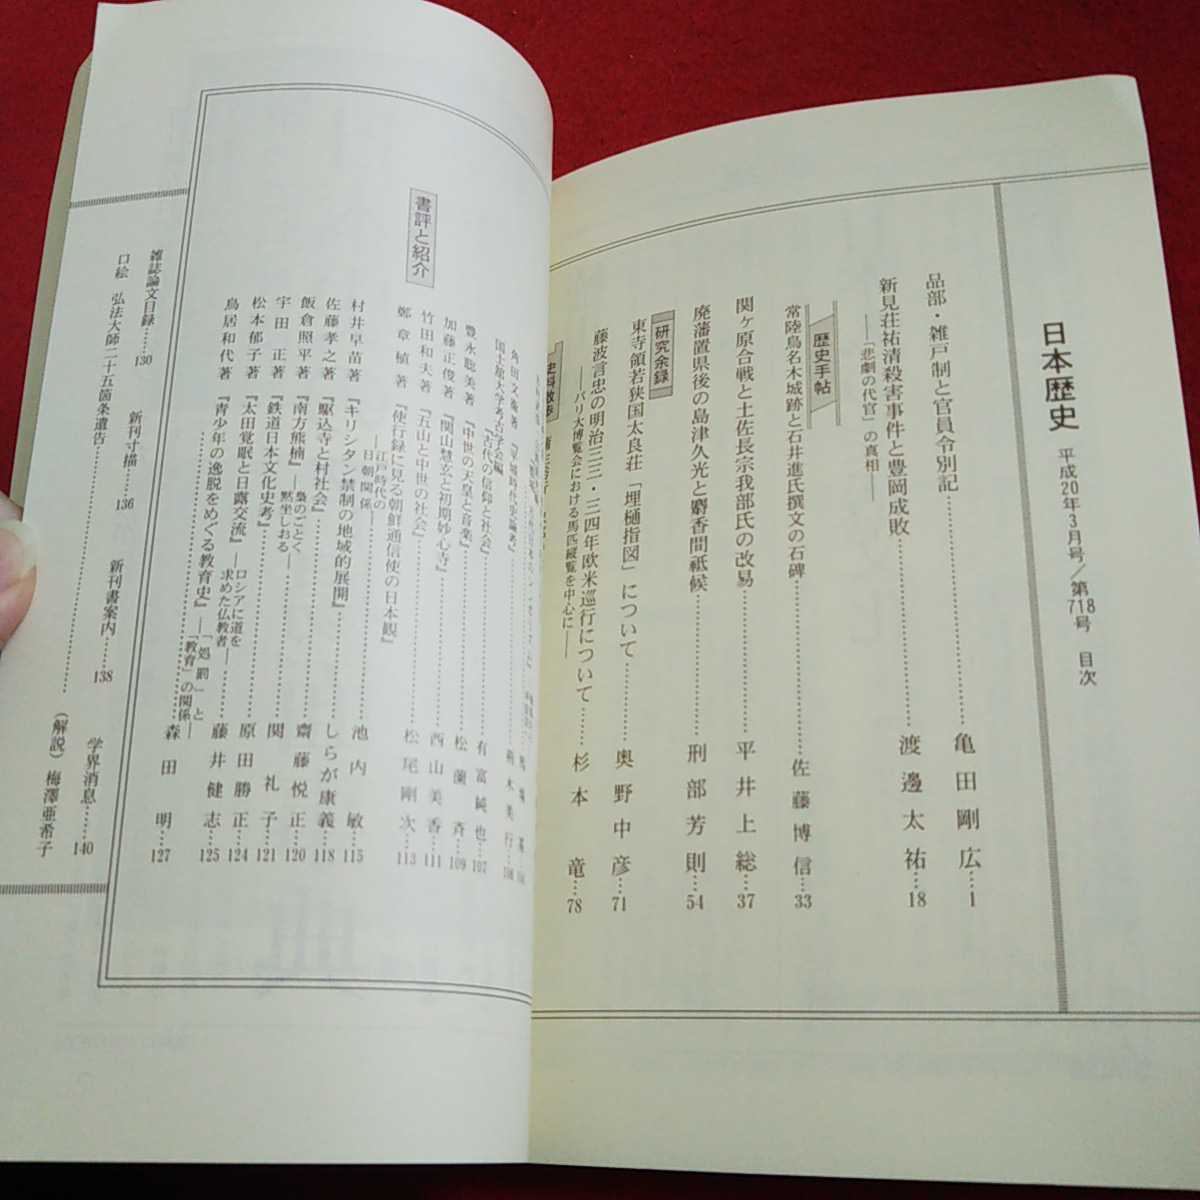 日本歴史 平成20年3月号/第718号 目次
品部・雑戸制と官員令別記……亀田剛広…1
新見荘祐清殺害事件と豊岡成敗……渡邊太祐…18
―「悲劇の代官」の真相―
歴史手帖
常陸鳥名木城跡と石井進氏撰文の石碑……佐藤博信…33
関ヶ原合戦と土佐長宗我部氏の改易……平井上総…37
廃藩置県後の島津久光と麝香間祗候……刑部芳則…54
研究余録
東寺領若狭国太良荘「埋樋指図」について……奥野中彦…71
藤波言忠の明治三三・三四年欧米巡行について……杉本竜…78
―パリ大博覧会における馬匹縦覧を中心に―
史料散歩
書評と紹介
角田文衞著『平城時代史論考』
国士舘大学考古学会編『古代の信仰と社会』……有富純也…107
豊永聡美著『中世の天皇と音楽』……松薗斉…109
加藤正俊著『関山慧玄と初期妙心寺』……西山美香…111
竹田和夫著『五山と中世の社会』……松尾剛次…113
鄭章植著『使行録に見る朝鮮通信使の日本観』
―江戸時代の日朝関係―
村井早苗著『キリシタン禁制の地域的展開』……池内敏…115
佐藤孝之著『駆込寺と村社会』……しらが康義…118
飯倉照平著『南方熊楠』―梟のごとく黙坐しおる―……齋藤悦正…120
宇田正著『鉄道日本文化史考』……関礼子…121
松本郁子著『太田覚眠と日露交流』―ロシアに道を求めた仏教者―……原田勝正…124
鳥居和代著『青少年の逸脱をめぐる教育史』―「処罰」と「教育」の関係―……藤井健志…125
森田明…127
雑誌論文目録……130
新刊寸描……136
新刊書案内……138
学界消息……140
口絵 弘法大師二十五箇条遺告……(解説)梅澤亜希子